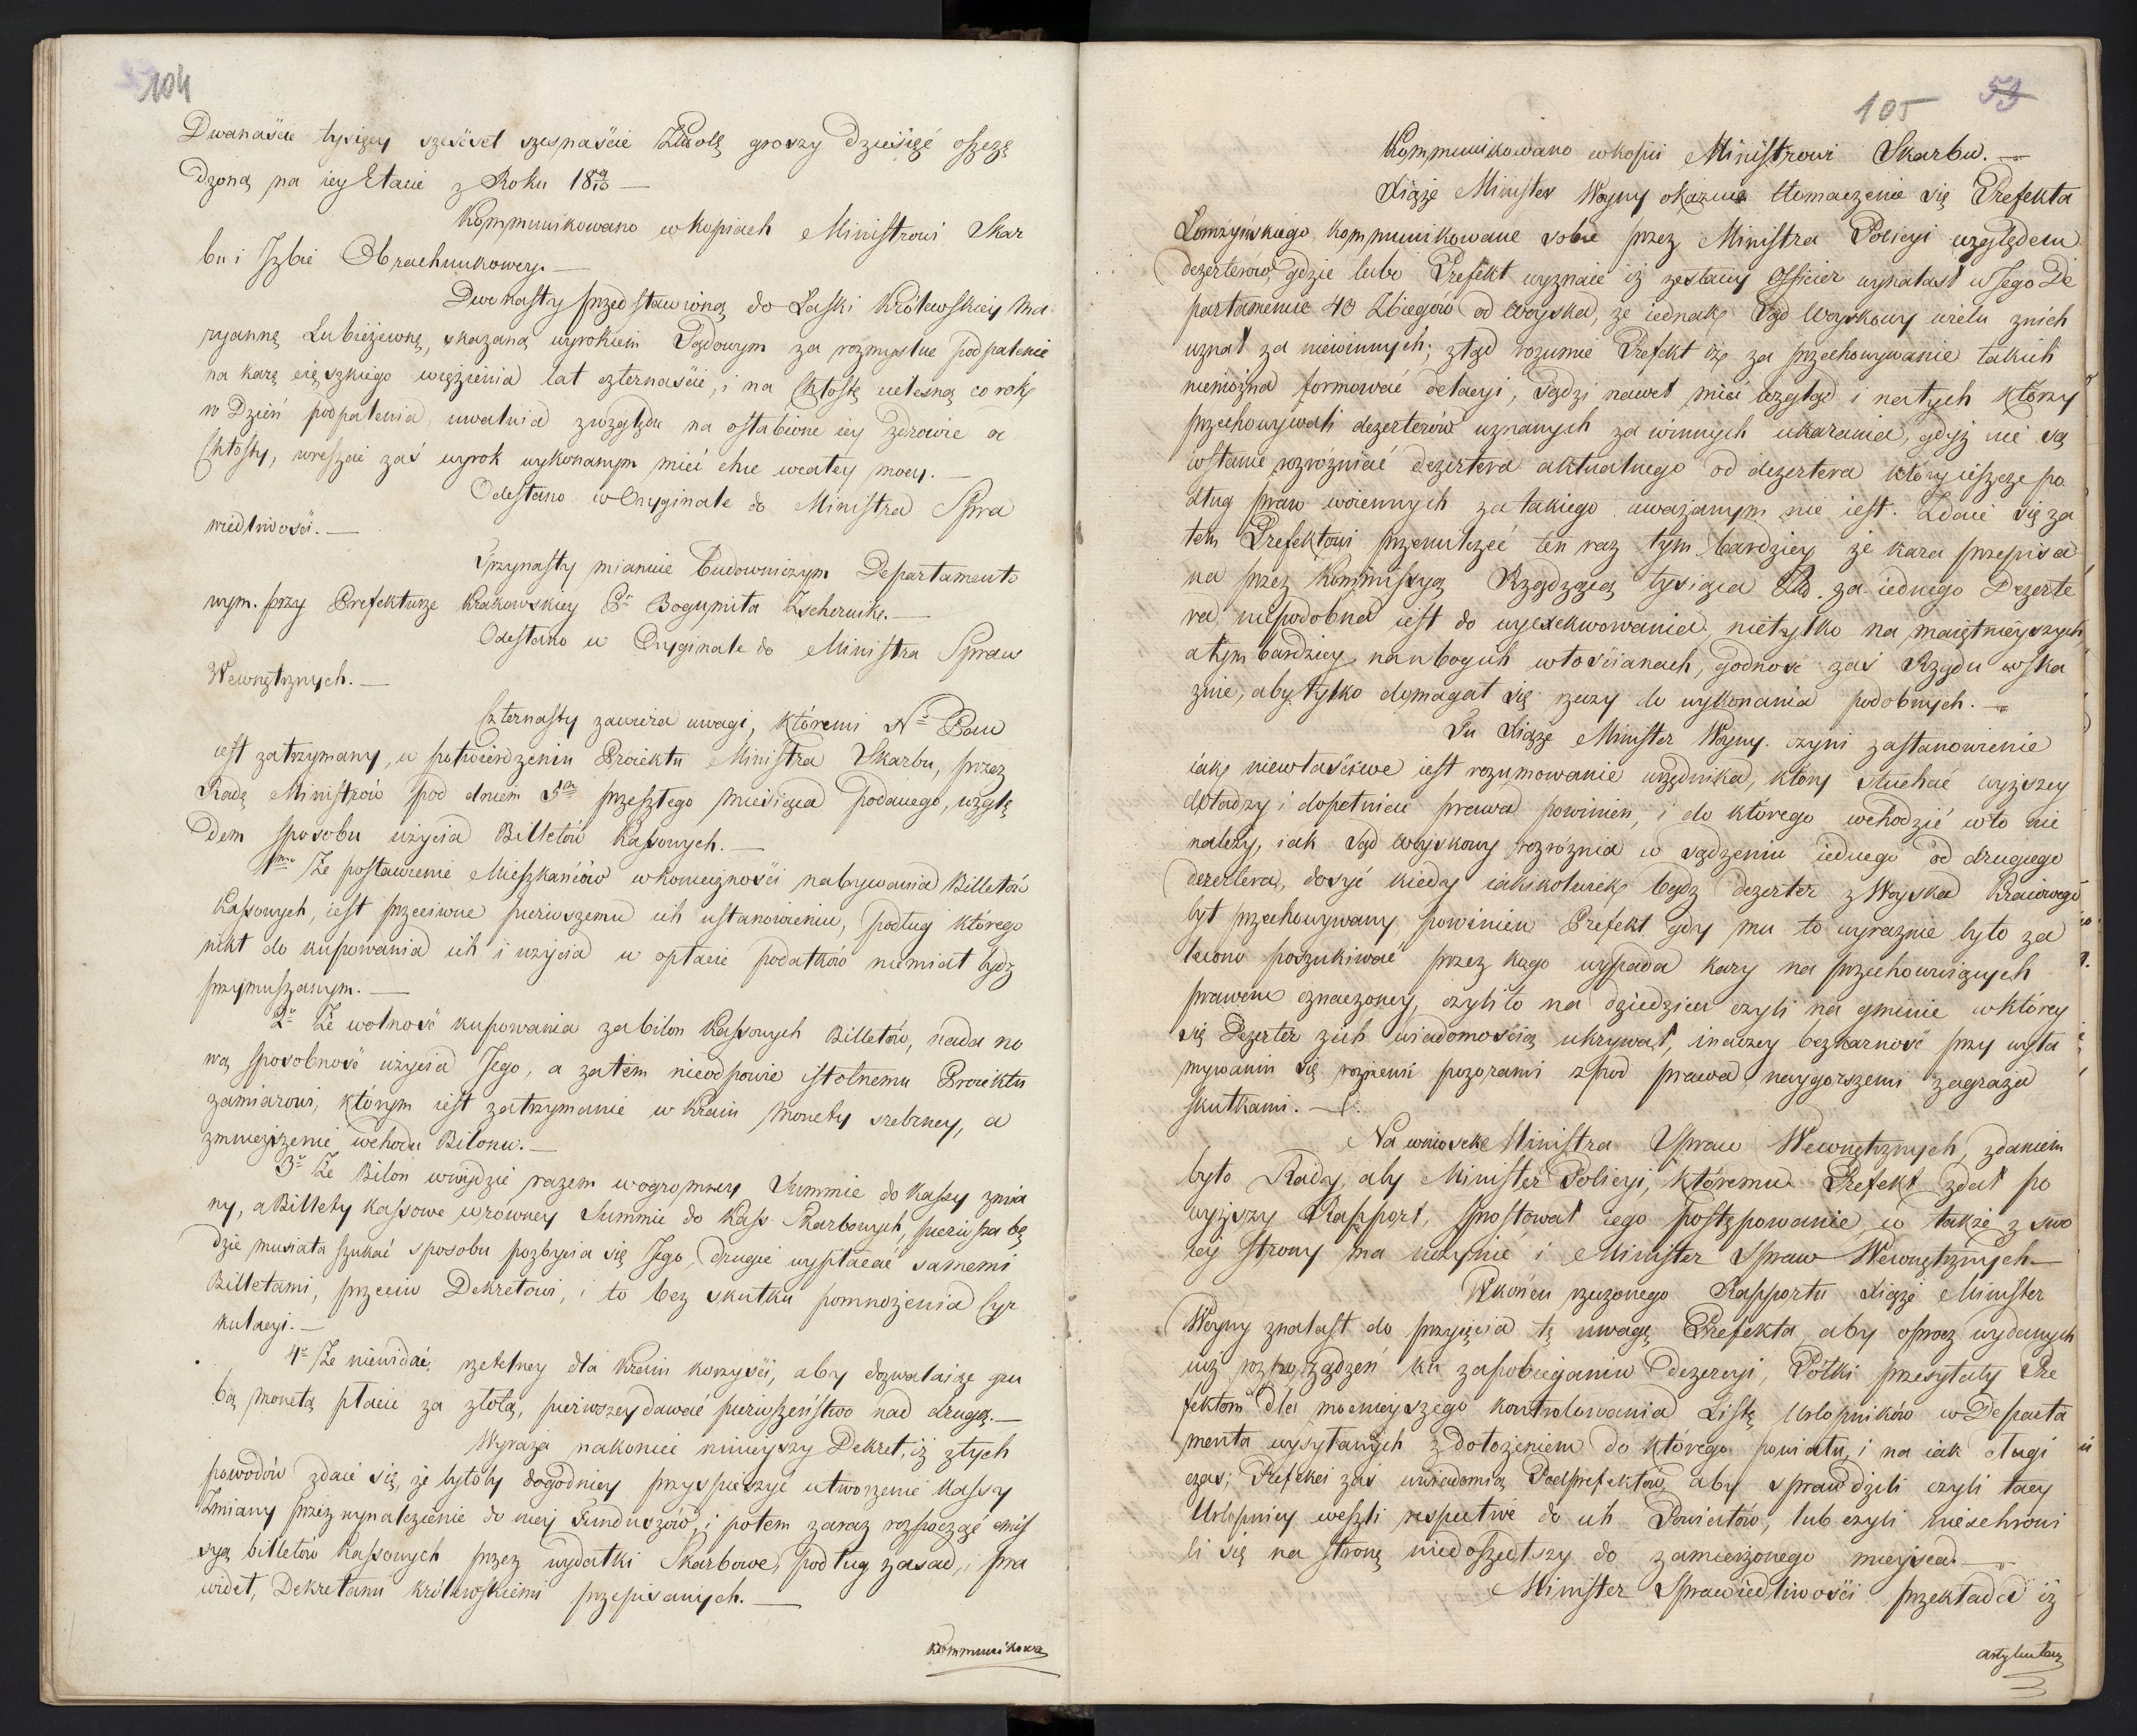 104
Dwanaście tysięcy sześćset szesnaście Złotę groszy dziesięć oszczę
dzoną na iey Etacie z Roku 18 9/10 —
Kommunikowano w kopiach Ministrowi Skar
bu i Izbie Obrachunkowey. —
Dwónasty przedstawioną do Łaski Królewskiey Ma
ryannę Lubieżewnę, skazaną wyrokiem Sądowym za rozmyslne podpalenie
na karę cięszkiego więzienia lat czternaście, i na Chłostę cielesną co rok
w Dzień podpalenia, uwalnia z względu na osłabione iey zdrowie od
Chłosty, wreszcie zaś wyrok wykonanym mieć chce w całey mocy. —
Odesłano w Oryginale do Ministra Spra
wiedliwości. —
Trzynasty mianuie Budowniczym Departamento
wym przy Prefekturze Krakowskiey Pa Bogumiła Zschernik. —
Odesłano w Oryginale do Ministra Spraw
Wewnętrznych. —
Czternasty zawiera uwagi, któremi N. Pan
iest zatrzymany, w potwierdzeniu Proiektu Ministra Skarbu, przez
Radę Ministrów pod dniem 5m przeszłego miesiąca podanego, wzglę
dem sposobu użycia Billetów Kassowych. —
1mo Że postawienie Mieszkańców w konieczności nabywania Billetów
Kassowych, iest przeciwne pierwszemu ich ustanowieniu, podług którego
nikt do kupowania ich i użycia w opłacie podatków niemiał bydź
przymuszanym. —
2o Że wolność kupowania za bilon Kassowych Billetów, nada no
wą sposobność użycia Jego, a zatem nieodpowie istotnemu Proiektu
zamiarowi, którym iest zatrzymanie w Kraiu Monety srebrney, a
zmnieyszenie wchodu Bilonu. —
3o Że Bilon wniydzie razem w ogromney Summie do Kassy zmia
ny, a Billety Kassowe w równey Summie do Kass Skarbowych, pierwsza bę
dzie musiała szukać sposobu pozbycia się Jego, drugie wypłacać samemi
Billetami, przeciw Dekretowi, i to bez skutku pomnożenia Cyr
kulacyi. —
4o Że niewidać rzetelney dla Kraiu korzyści, aby dozwalaiąc gru
bą monetą płacić za złotą, pierwszey dawać pierwszeństwo nad drugą. —
Wyraża nakoniec ninieyszy Dekret, iż z tych
powodów zdaie się, że byłoby dogodniey przyspieszyć utworzenie Kassy
Zmiany przez wynalezienie do niey Funduszów, i potem zaraz rozpocząć emis
syą billetów Kassowych przez wydatki Skarbowe, podług zasad, i pra
wideł, Dekretami królewskiemi przepisanych. —
Kommunikowa
105
53
Kommunikowano w kopii Ministrowi Skarbu. —
Xiąże Minister Woyny okazuie tłomaczenie się Prefekta
Łomżyńskiego Kommunikowane sobie przez Ministra Policyi względem
dezerterów, gdzie lubo Prefekt wyznaie iż zesłany Officier wynalazł w Jego De
partamencie 40 Zbiegów od woyska, że iednak Sąd Woyskowy wielu z nich
uznał za niewinnych; ztąd rozumie Prefekt że za przechowywanie takich
niemożna formować delacyi, sądzi nawet mieć wzgląd i na tych którzy
przechowywali dezerterów uznanych za winnych ukarania, gdyż nie są
w stanie rozróżniać dezertera aktualnego od dezertera który ieszcze po
dług praw woiennych za takiego uważanym nie iest. Zdaie się za
tem Prefektowi przemilczeć ten raz tym bardziey że kara przepisa
na przez Kommissyą Rządzącą tysiąca Zł. za iednego Dezerte
ra, niepodobna iest do wyexekwowania, nietylko na maiętnieyszych,
a tym bardziey na ubogich włościanach, godność zaś Rządu wska
zuie, aby tylko domagał się rzeczy do wykonania podobnych. —
Tu Xiąże Minister Woyny czyni zastanowienie
iak niewłaściwe iest rozumowanie urzędnika, który słuchać wyższey
władzy i dopełniać prawa powinien, i do którego wchodzić w to nie
należy, iak Sąd woyskowy rozróżnia w sądzeniu iednego od drugiego
dezertera, dosyć kiedy iakikolwiek bądź dezerter z Woyska Kraiowego
był przechowywany powinien Prefekt gdy mu to wyraźnie było za
lecono poszukiwać przez kogo wypada kary na przechowuiących
prawem oznaczoney, czyli to na dziedzicu czyli na gminie w którey
się Dezerter z ich wiadomością ukrywał, inaczey bezkarność przy utrzy
mywaniu się różnemi pozorami z pod prawa naygorszemi zagraża
skutkami. —
Na wniosek Ministra Spraw Wewnętrznych, zdaniem
było Rady, aby Minister Policyi, któremu Prefekt zdał po
wyższy Rapport, sprostował iego postępowanie, co także z swo
iey strony ma uczynić i Minister Spraw Wewnętrznych —
W końcu rzeczonego Rapportu Xiąże Minister
Woyny znalazł do przyięcia tę uwagę Prefekta, aby oprócz wydanych
iuż rozporządzeń ku zapobieganiu dezercyi, Półki przesyłały Pre
fektom dla mocnieyszego kontrolowania Listę Urlopników w Departa
menta wysyłanych z dołożeniem do którego powiatu, i na iak długi
czas; Prefekci zaś uwiadomią Podprefektów aby sprawdzili czyli tacy
Urlopnicy weszli respective do ich Powiatów, lub czyli nieschroni
li się na stronę niedoszedłszy do zamierzonego mieysca. —
Minister Sprawiedliwości przekłada iż